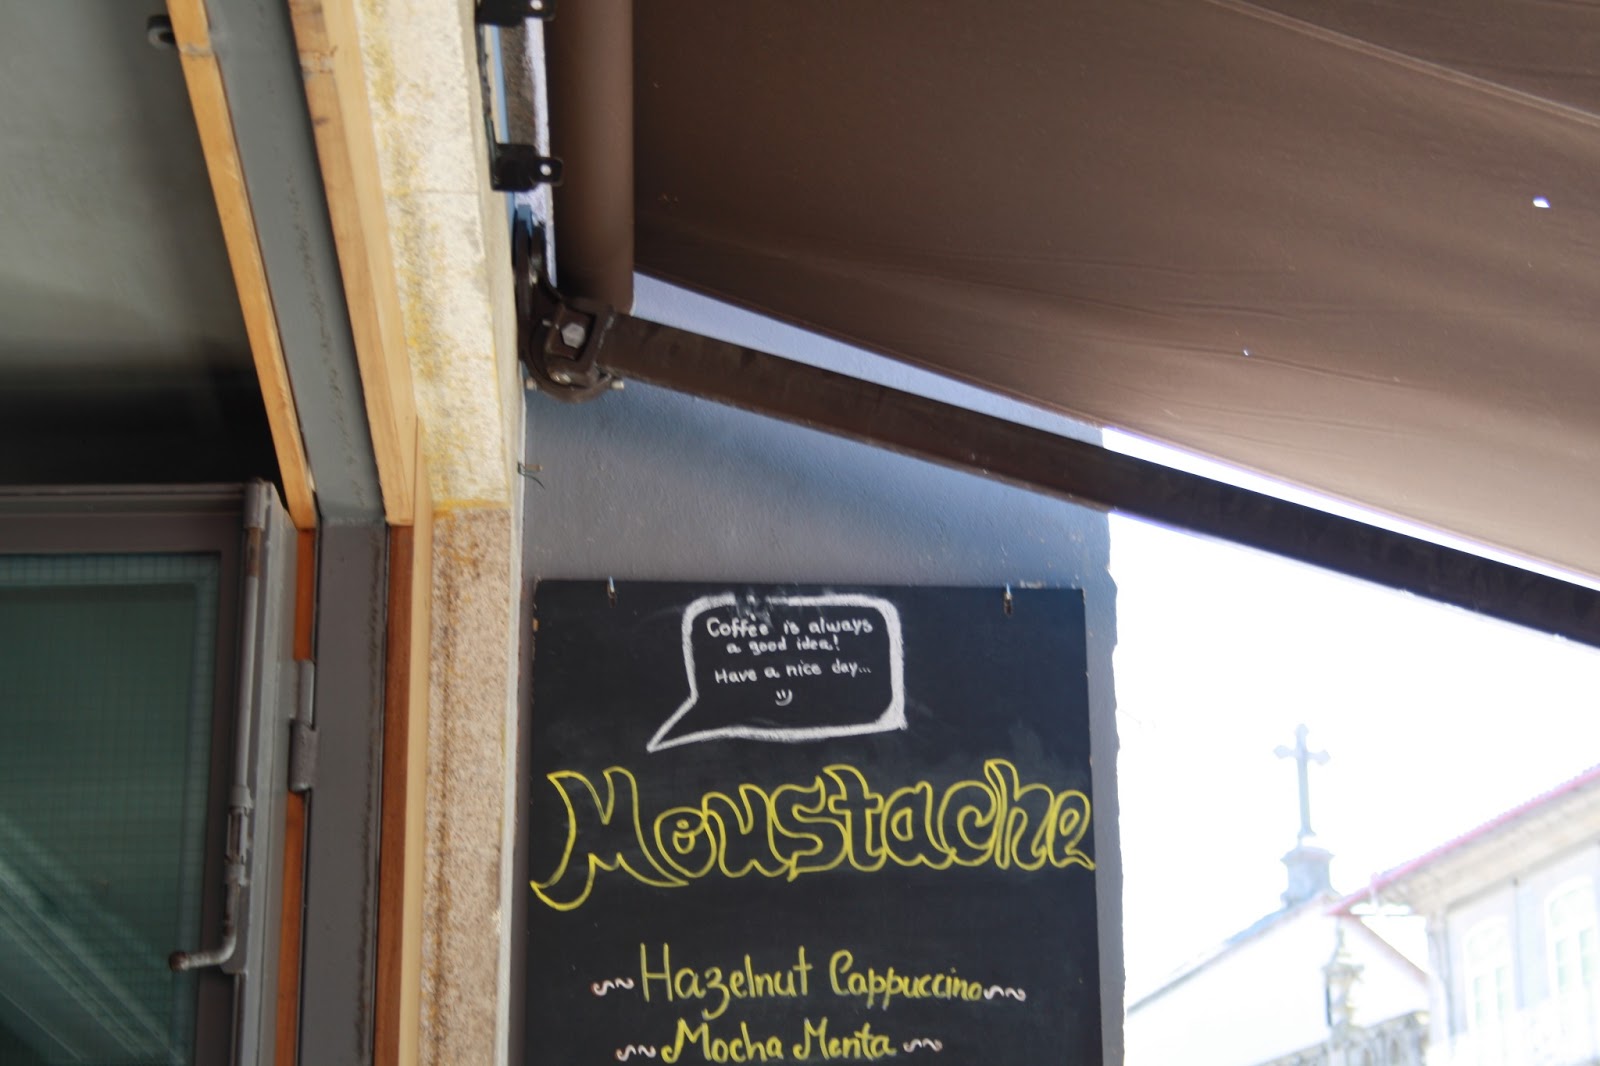 Coffee is always
a good idea!
Have a nice day...
Moustache
Hazelnut Cappuccino
Mocha Menta